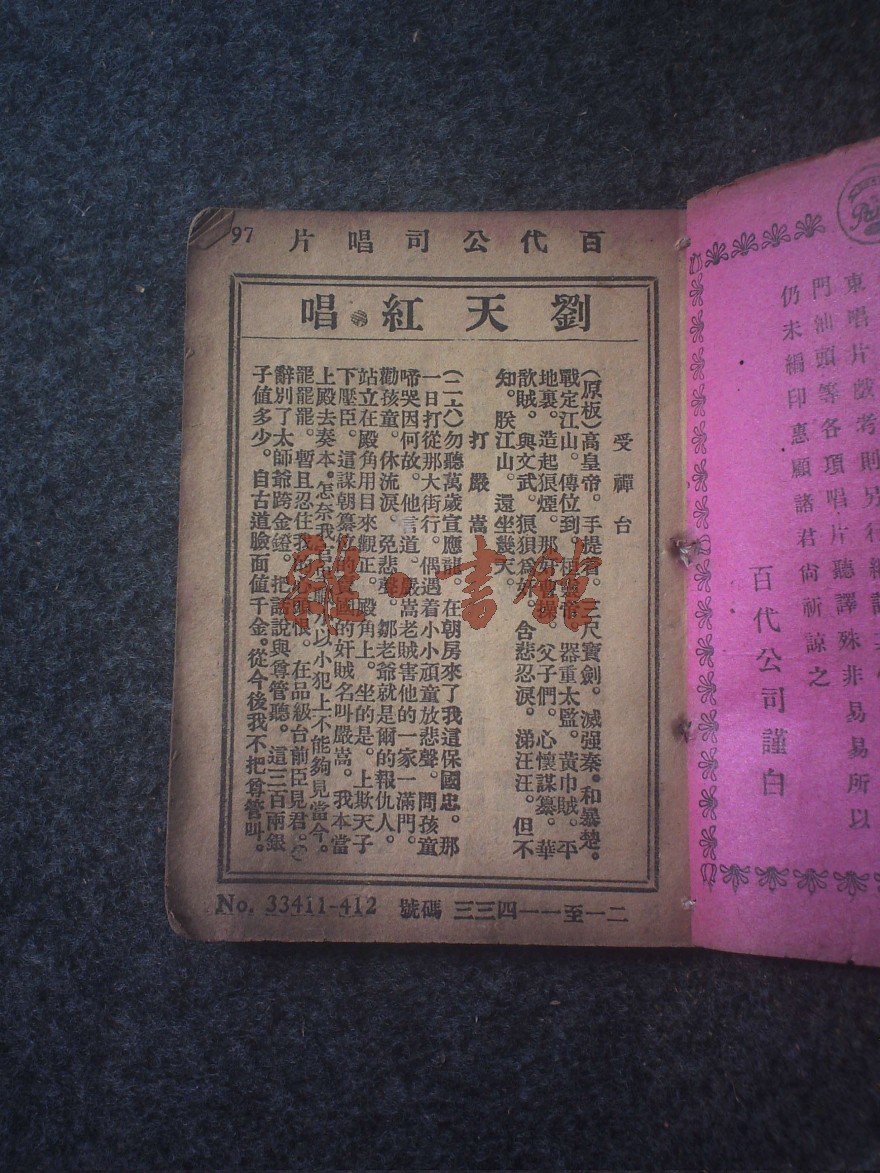 97
百代公司唱片
劉天紅唱
受禪台
(原板)高皇帝。手提着。三尺寳劍。滅强秦。和暴楚。
戰定江山。傳位到。桓靈帝。器重太監。黃巾賊。平
地裏。造起狼煙。那奸曹操。父子們。心懷謀纂。華
歆賊。與文武。狼狽爲奸。含悲忍淚。涕汪汪。但不
知。朕江山。還坐幾天。
打嚴嵩
(二六)勿聽萬歲宣應龍。在朝房來了我這保國忠。那
一日打從那大街行。偶遇着小小頑童放悲聲。問孩童
啼哭因何故。他言道。嚴嵩老賊害他的一家一滿門。
勸孩童。休流淚。免悲聲。鄒老爺就是爾的報仇人。
站立在殿角用目來觀正。殿角上。坐的是。上欺天子
下壓臣。這謀朝纂位的賣國的奸賊名叫嚴嵩。我本當
上殿去奏本。怎奈我官職小以小犯上不能夠見當今。
罷罷罷。暫且忍住我的心頭恨。在品級台前臣見君。()
辭別了太師爺跨金鐙。把話說與尊管聽。這三百兩銀
子值多少。自古道臉面值千金。從今後我不把尊管叫。
No. 33411-412 號碼 三三四一一至一二
東唱片戲考則另行
門汕頭等各項唱片聽譯殊非易易所以
仍未綱印惠顧諸君尙祈諒之
百代公司謹白
雜·書館